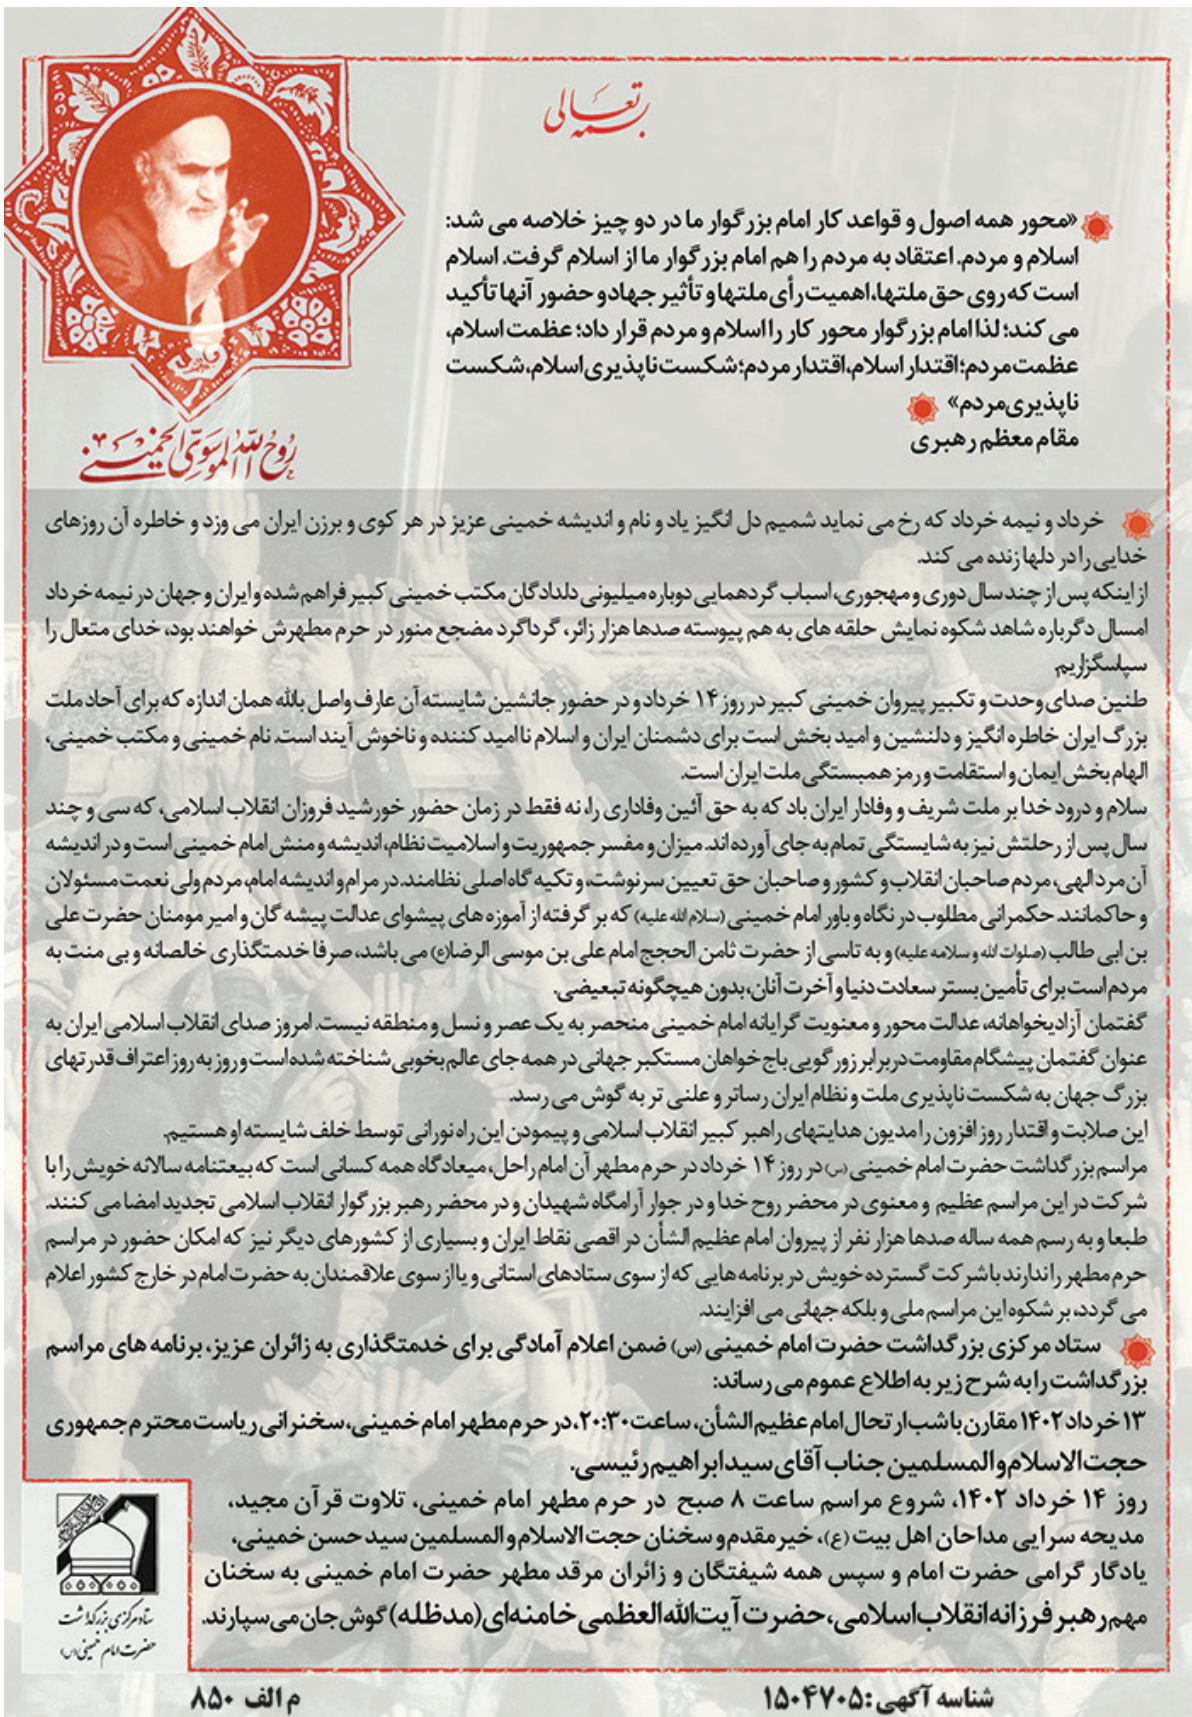 بسمه تعالی
«محور همه اصول و قواعد کار امام بزرگوار ما در دو چیز خلاصه می شد:
اسلام و مردم. اعتقاد به مردم را هم امام بزرگوار ما از اسلام گرفت. اسلام
است که روی حق ملتها، اهمیت رأی ملتها و تأثیر جهاد و حضور آنها تأکید
می کند؛ لذا امام بزرگوار محور کار را اسلام و مردم قرار داد؛ عظمت اسلام،
عظمت مردم؛ اقتدار اسلام، اقتدار مردم؛ شکست ناپذیری اسلام، شکست
ناپذیری مردم»
مقام معظم رهبری
روح الله الموسوی الخمینی
خرداد و نیمه خرداد که رخ می نماید شمیم دل انگیز یاد و نام و اندیشه خمینی عزیز در هر کوی و برزن ایران می وزد و خاطره آن روزهای
خدایی را در دلها زنده می کند.
از اینکه پس از چند سال دوری و مهجوری، اسباب گردهمایی دوباره میلیونی دلدادگان مکتب خمینی کبیر فراهم شده و ایران و جهان در نیمه خرداد
امسال دگرباره شاهد شکوه نمایش حلقه های به هم پیوسته صدها هزار زائر، گرداگرد مضجع منور در حرم مطهرش خواهند بود، خدای متعال را
سپاسگزاریم.
طنین صدای وحدت و تکبیر پیروان خمینی کبیر در روز ۱۴ خرداد و در حضور جانشین شایسته آن عارف واصل بالله همان اندازه که برای آحاد ملت
بزرگ ایران خاطره انگیز و دلنشین و امید بخش است برای دشمنان ایران و اسلام نا امید کننده و ناخوش آیند است. نام خمینی و مکتب خمینی،
الهام بخش ایمان و استقامت و رمز همبستگی ملت ایران است.
سلام و درود خدا بر ملت شریف و وفادار ایران باد که به حق آئین وفاداری را، نه فقط در زمان حضور خورشید فروزان انقلاب اسلامی، که سی و چند
سال پس از رحلتش نیز به شایستگی تمام به جای آورده اند. میزان و مفسر جمهوریت و اسلامیت نظام، اندیشه و منش امام خمینی است و در اندیشه
آن مرد الهی، مردم صاحبان انقلاب و کشور و صاحبان حق تعیین سرنوشت، و تکیه گاه اصلی نظامند. در مرام و اندیشه امام، مردم ولی نعمت مسئولان
و حاکمانند. حکمرانی مطلوب در نگاه و باور امام خمینی (سلام الله علیه) که بر گرفته از آموزه های پیشوای عدالت پیشه گان و امیر مومنان حضرت علی
بن ابی طالب (صلوات الله و سلامه علیه) و به تاسی از حضرت ثامن الحجج امام علی بن موسی الرضا(ع) می باشد، صرفا خدمتگذاری خالصانه و بی منت به
مردم است برای تأمین بستر سعادت دنیا و آخرت آنان، بدون هیچگونه تبعیضی.
گفتمان آزادیخواهانه، عدالت محور و معنویت گرایانه امام خمینی منحصر به یک عصر و نسل و منطقه نیست. امروز صدای انقلاب اسلامی ایران به
عنوان گفتمان پیشگام مقاومت در برابر زورگویی باج خواهان مستکبر جهانی در همه جای عالم بخوبی شناخته شده است و روز به روز اعتراف قدرتهای
بزرگ جهان به شکست ناپذیری ملت و نظام ایران رساتر و علنی تر به گوش می رسد.
این صلابت و اقتدار روز افزون را مدیون هدایتهای راهبر کبیر انقلاب اسلامی و پیمودن این راه نورانی توسط خلف شایسته او هستیم.
مراسم بزرگداشت حضرت امام خمینی (س) در روز ۱۴ خرداد در حرم مطهر آن امام راحل، میعادگاه همه کسانی است که بیعتنامه سالانه خویش را با
شرکت در این مراسم عظیم و معنوی در محضر روح خدا و در جوار آرامگاه شهیدان و در محضر رهبر بزرگوار انقلاب اسلامی تجدید امضا می کنند.
طبعا و به رسم همه ساله صدها هزار نفر از پیروان امام عظیم الشأن در اقصی نقاط ایران و بسیاری از کشورهای دیگر نیز که امکان حضور در مراسم
حرم مطهر را ندارند با شرکت گسترده خویش در برنامه هایی که از سوی ستادهای استانی و یا از سوی علاقمندان به حضرت امام در خارج کشور اعلام
می گردد، بر شکوه این مراسم ملی و بلکه جهانی می افزایند.
ستاد مرکزی بزرگداشت حضرت امام خمینی (س) ضمن اعلام آمادگی برای خدمتگذاری به زائران عزیز، برنامه های مراسم
بزرگداشت را به شرح زیر به اطلاع عموم می رساند:
۱۳ خرداد ۱۴۰۲ مقارن با شب ارتحال امام عظیم الشأن، ساعت ۲۰:۳۰، در حرم مطهر امام خمینی، سخنرانی ریاست محترم جمهوری
حجت الاسلام والمسلمین جناب آقای سید ابراهیم رئیسی.
روز ۱۴ خرداد ۱۴۰۲، شروع مراسم ساعت ۸ صبح در حرم مطهر امام خمینی، تلاوت قرآن مجید،
مدیحه سرایی مداحان اهل بیت (ع)، خیر مقدم و سخنان حجت الاسلام والمسلمین سید حسن خمینی،
یادگار گرامی حضرت امام و سپس همه شیفتگان و زائران مرقد مطهر حضرت امام خمینی به سخنان
مهم رهبر فرزانه انقلاب اسلامی، حضرت آیت الله العظمی خامنه ای (مدظله) گوش جان می سپارند.
ستاد مرکزی بزرگداشت
حضرت امام خمینی (س)
شناسه آگهی: ۱۵۰۴۷۰۵
م الف ۸۵۰